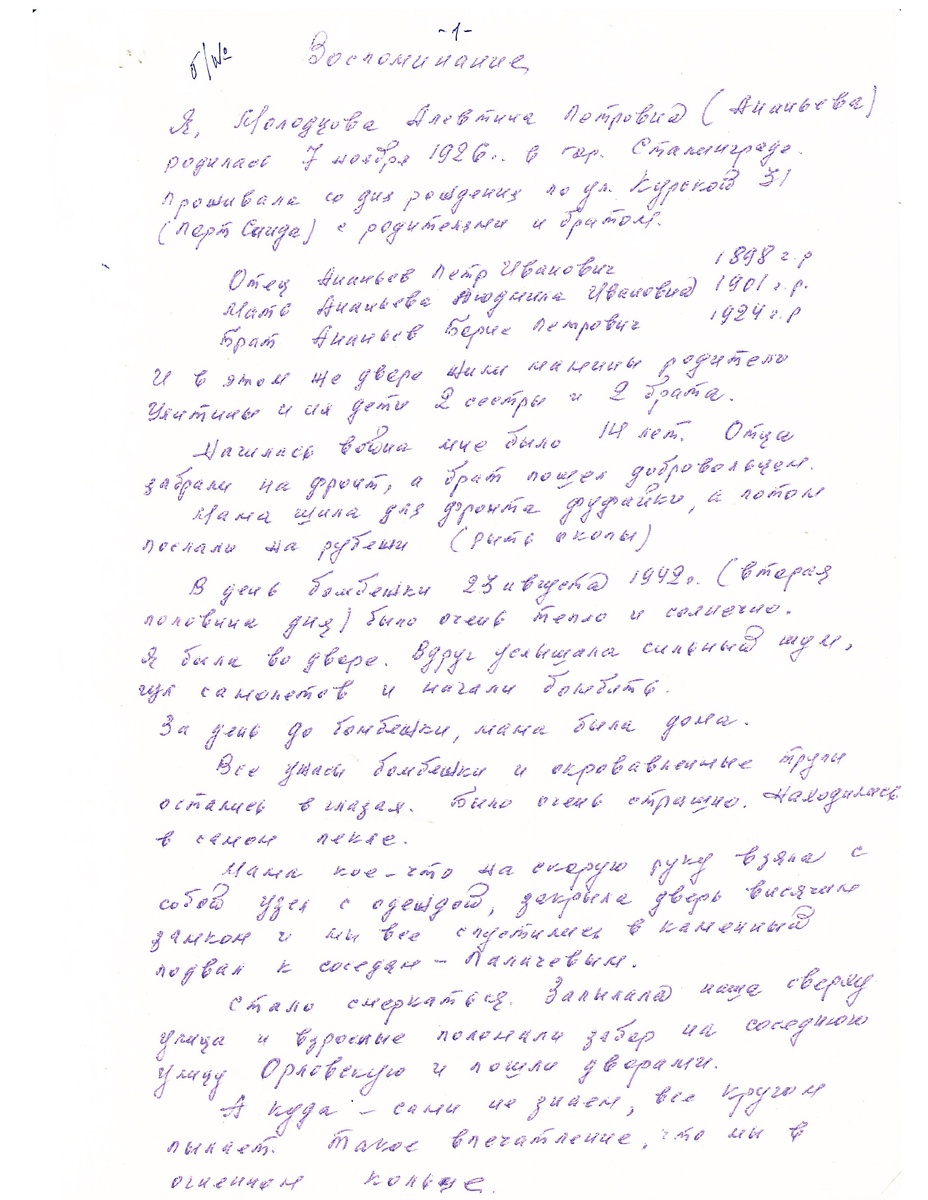 -1-
б/№ Воспоминание
Я, Молодцова Алевтина Петровна (Ананьева)
родилась 7 ноября 1926г. в гор. Сталинграде.
Проживала со дня рождения по ул. Курской 31
(Порт Саида) с родителями и братом.
Отец Ананьев Петр Иванович 1898 г.р
Мать Ананьева Людмила Ивановна 1901 г.р.
Брат Ананьев Борис Петрович 1924 г.р
И в этом же дворе жили мамины родители
Улитины и их дети 2 сестры и 2 брата.
Началась война мне было 14 лет. Отца
забрали на фронт, а брат пошел добровольцем.
Мама шила для фронта фуфайки, а потом
послали на рубежи (рыть окопы)
В день бомбежки 23 августа 1942г. (вторая
половина дня) было очень тепло и солнечно.
Я была во дворе. Вдруг услышала сильный шум,
гул самолетов и начали бомбить.
За день до бомбежки, мама была дома.
Все ужасы бомбежки и окровавленные трупы
остались в глазах. Было очень страшно. Находилась
в самом пекле.
Мама кое-что на скорую руку взяла с
собой узел с одеждой, закрыла дверь висячим
замком и мы все спустились в каменный
подвал к соседам - Палачевым.
Стало смеркаться. Запылала наша сверху
улица и взрослые поломали забор на соседнюю
улицу Орловскую и пошли дворами.
А куда - сами не знаем, все кругом
пылает. Такое впечатление, что мы в
огненном кольце.